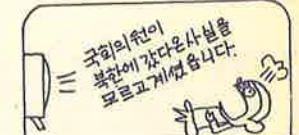 국회의원이
북한에 갔다온사실을
모르고계셨읍니다.